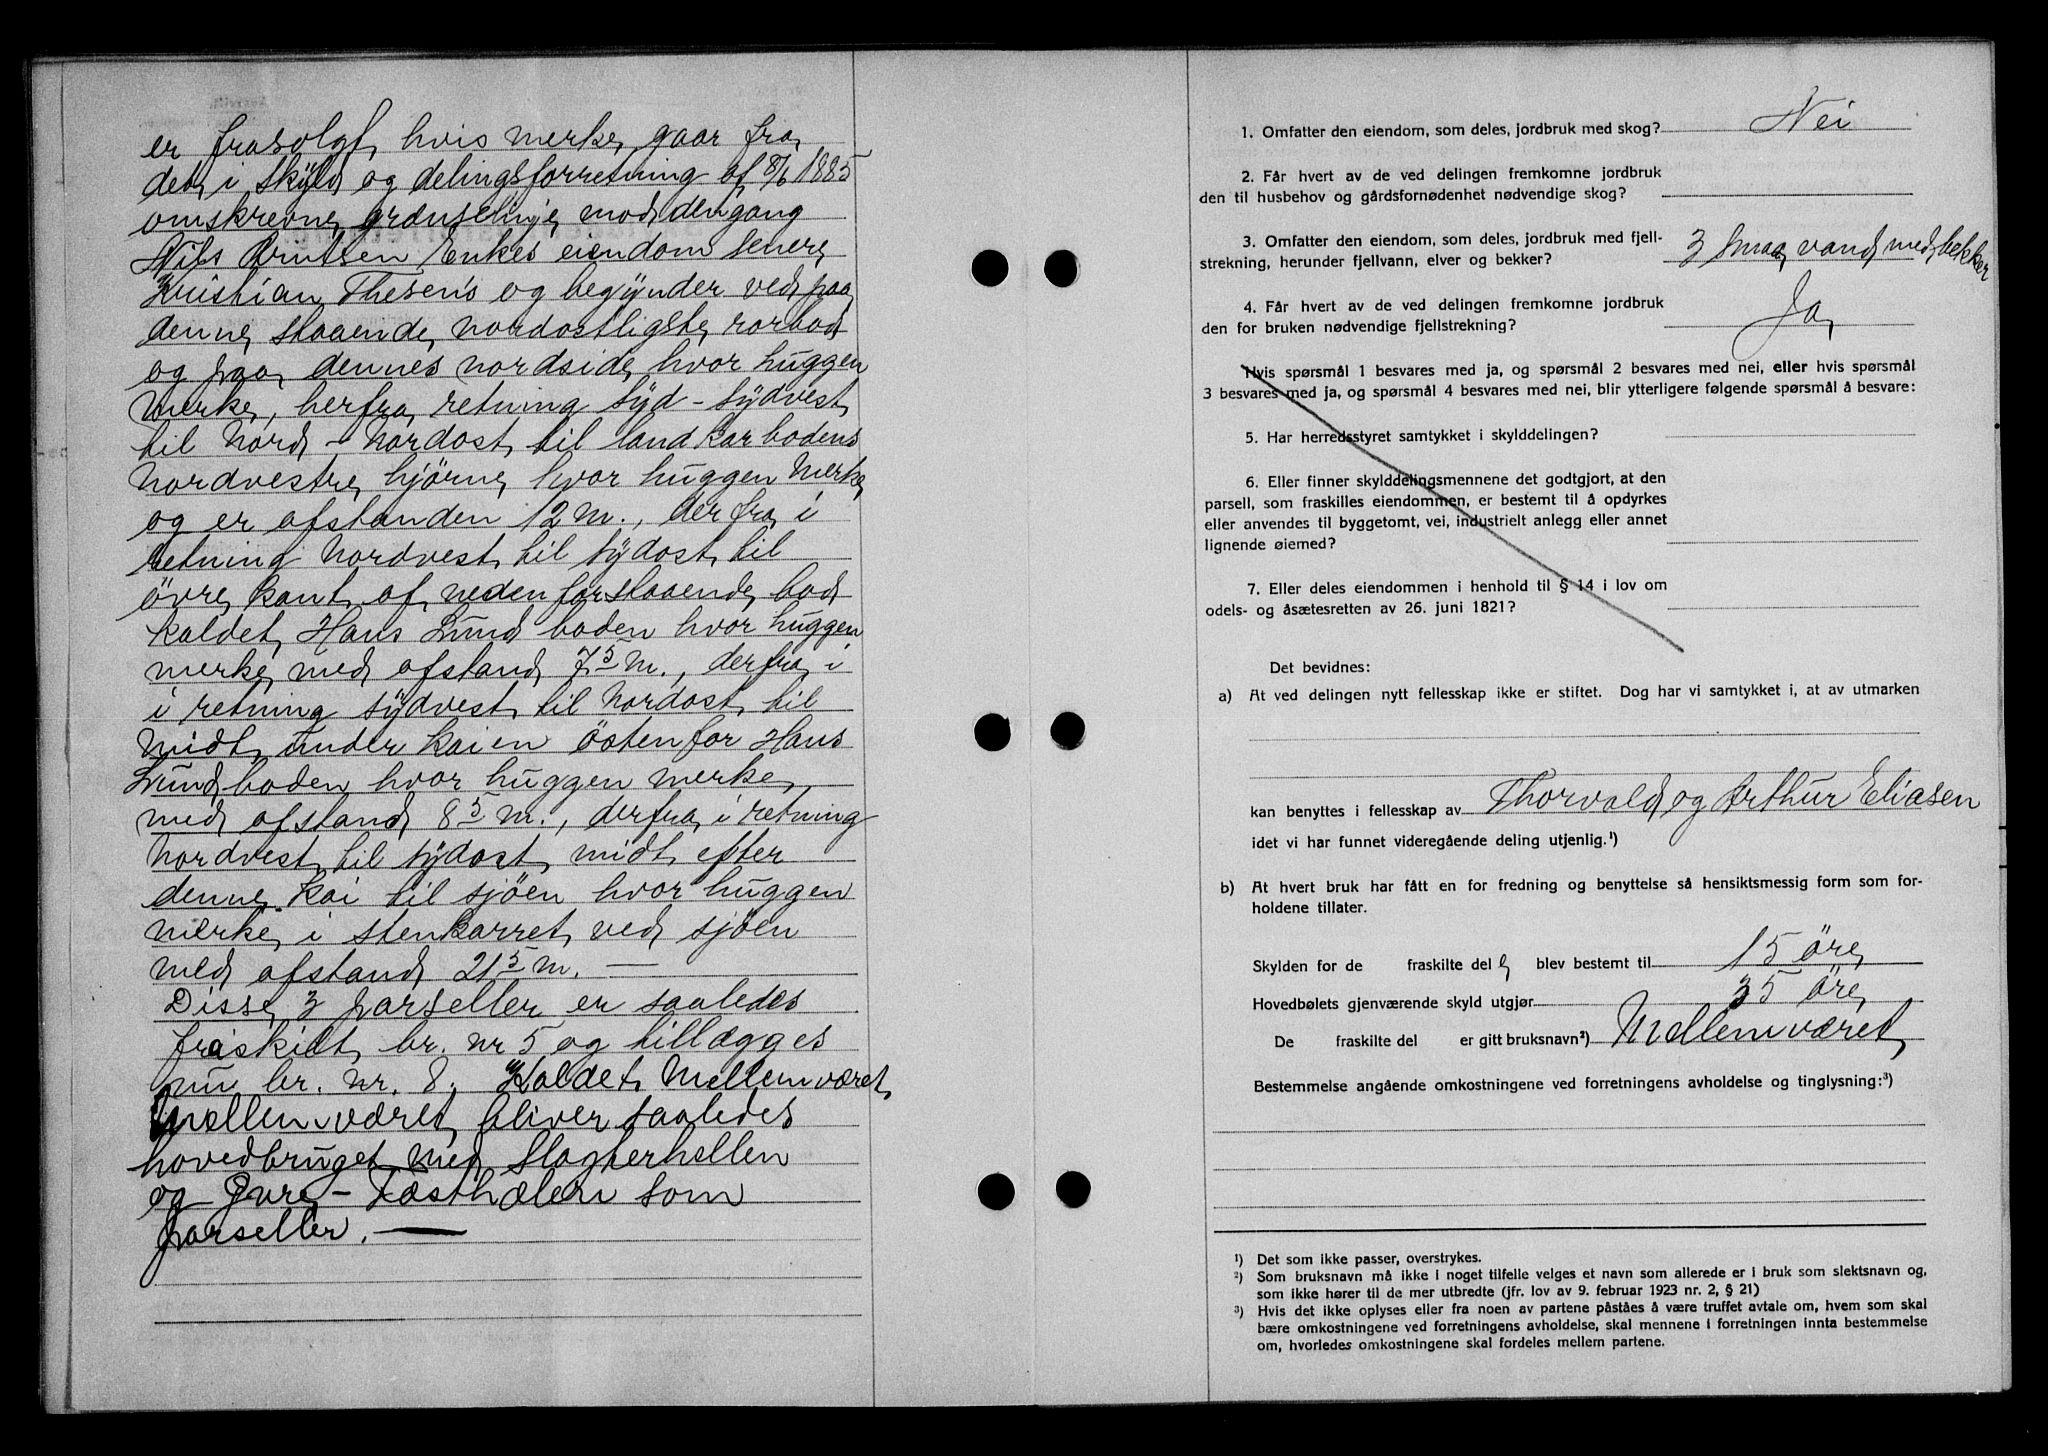 er frasolgt, hvis merke gaar fra
det i Skyld og delingsforretning af 8/6 1885
omskrevne grænselinje mod dengang
Nils Knutsen Enkes eiendom senere
Kristian Thesens og begynder ved paa
denne staaende nordostligste rorbod
og paa dennes nordside hvor huggen
merke, herfra retning Syd-Sydvest
til Nord-Nordost til landkarbodens
Nordvestre hjörne hvor huggen merke
og er afstanden 12 m., derfra i
retning Nordvest til Sydost til
övre kant af nedenforstaaende bod
kaldet Hans Lund boden hvor huggen
merke med afstand 7⁵ m., derfra i
i retning Sydvest til Nordost til
midt under kaien östenfor Hans
Lundboden hvor huggen merke
med afstand 8⁵ m., derfra i retning
Nordvest til Sydost midt efter
denne kai til sjöen hvor huggen
merke i stenkarret ved sjöen
med afstand 21⁵ m. —
Disse 3 parseller er saaledes
fraskilt br. nr 5 og tillægges
nu br. nr. 8. Kaldet Mellemværet
Mellemværet bliver saaledes
hovedbruget med Slagterhellen
og Øvre-Fæsthælen som
parseller. —
1. Omfatter den eiendom, som deles, jordbruk med skog? Nei
2. Får hvert av de ved delingen fremkomne jordbruk
den til husbehov og gårdsfornødenhet nødvendige skog?
3. Omfatter den eiendom, som deles, jordbruk med fjell-
strekning, herunder fjellvann, elver og bekker? 3 Smaa vand med bekker
4. Får hvert av de ved delingen fremkomne jordbruk
den for bruken nødvendige fjellstrekning? Ja
Hvis spørsmål 1 besvares med ja, og spørsmål 2 besvares med nei, eller hvis spørsmål
3 besvares med ja, og spørsmål 4 besvares med nei, blir ytterligere følgende spørsmål å besvare:
5. Har herredsstyret samtykket i skylddelingen?
6. Eller finner skylddelingsmennene det godtgjort, at den
parsell, som fraskilles eiendommen, er bestemt til å opdyrkes
eller anvendes til byggetomt, vei, industrielt anlegg eller annet
lignende øiemed?
7. Eller deles eiendommen i henhold til § 14 i lov om
odels- og åsætesretten av 26. juni 1821?
Det bevidnes:
a) At ved delingen nytt fellesskap ikke er stiftet. Dog har vi samtykket i, at av utmarken
kan benyttes i fellesskap av Thorvald og Arthur Eliasen
idet vi har funnet videregående deling utjenlig.¹)
b) At hvert bruk har fått en for fredning og benyttelse så hensiktsmessig form som for-
holdene tillater.
Skylden for de fraskilte del e blev bestemt til 15 öre
Hovedbølets gjenværende skyld utgjør 35 öre
De fraskilte del er gitt bruksnavn²) Mellemværet
Bestemmelse angående omkostningene ved forretningens avholdelse og tinglysning:³)
¹) Det som ikke passer, overstrykes.
²) Som bruksnavn må ikke i noget tilfelle velges et navn som allerede er i bruk som slektsnavn og,
som ikke hører til de mer utbredte (jfr. lov av 9. februar 1923 nr. 2, § 21)
³) Hvis det ikke oplyses eller fra noen av partene påståes å være truffet avtale om, hvem som skal
bære omkostningene ved forretningens avholdelse, skal mennene i forretningen innta bestemmelse
om, hvorledes omkostningene skal fordeles mellem partene.